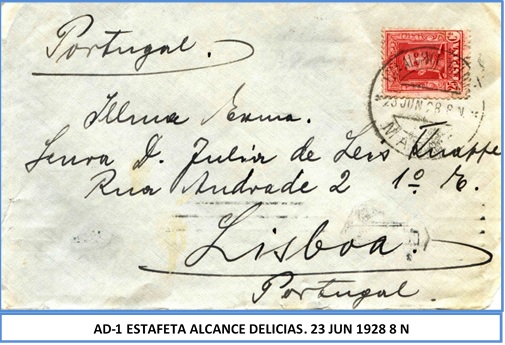 Portugal.
23 JUN 28 8 N
MA
Illma Exma.
Senra D. Julia de Leis Knappe
Rua Andrade 2 1º E.
Lisboa.
Portugal
AD-1 ESTAFETA ALCANCE DELICIAS. 23 JUN 1928 8 N